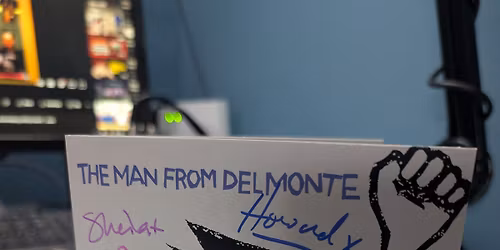 THE MAN FROM DELMONTE
Howard x
Sheila x